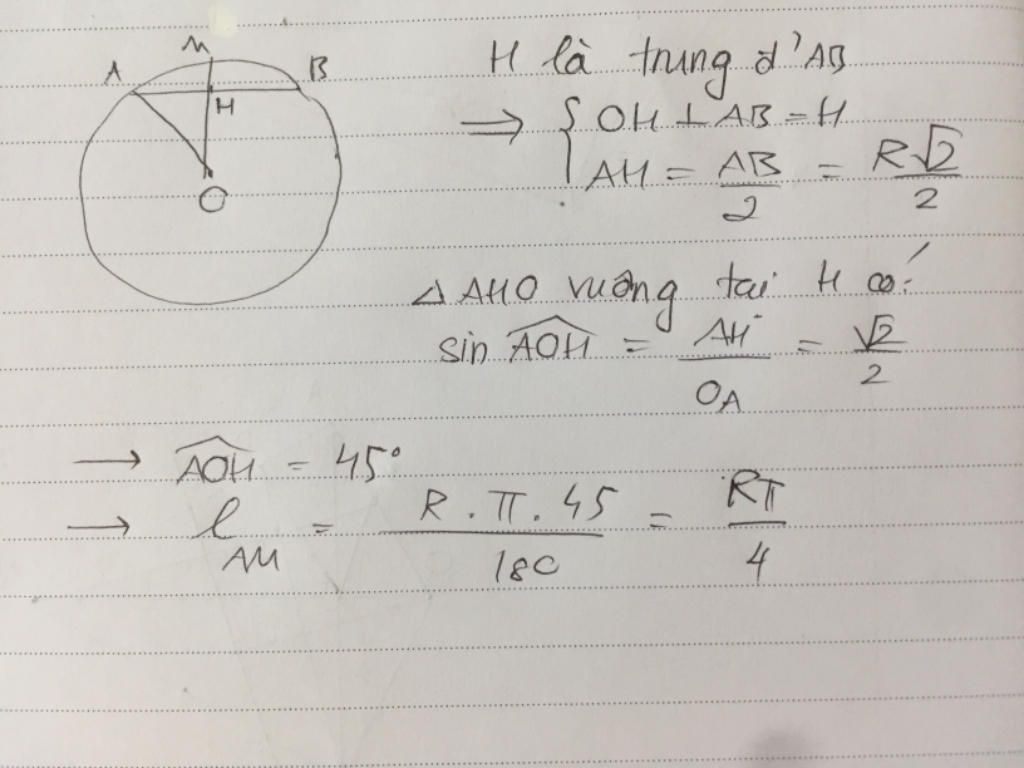 M
A B
H
O
H là trung đ' AB
⇒ { OH ⊥ AB = H
AH = AB/2 = R√2/2
△ AHO vuông tại H có:
sin AOH = AH/OA = √2/2
→ AOH = 45°
→ l AM = R . π . 45 / 180 = Rπ/4